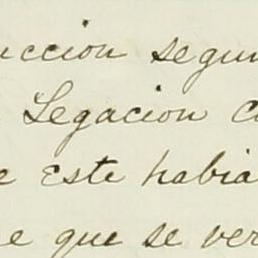 uccion segun
Legacion c
e este habia
e que se ver